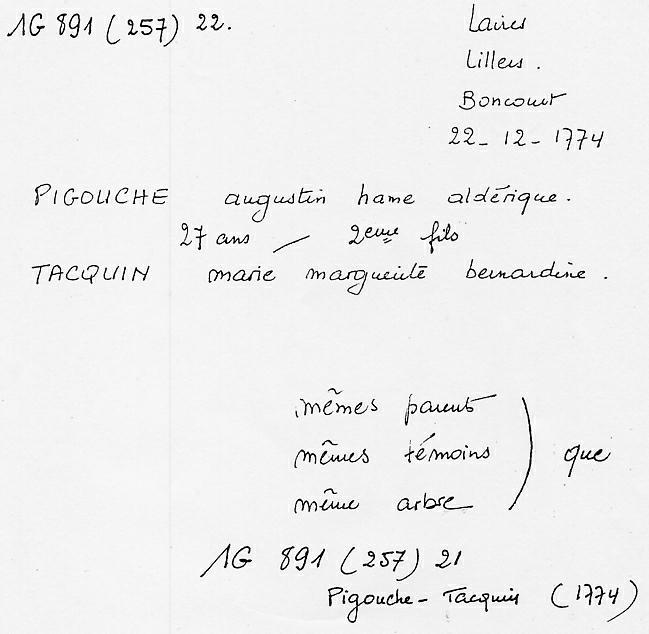 1G 891 (257) 22.
Laires
Lillers.
Boncourt
22-12-1774
PIGOUCHE augustin hame aldérique.
27 ans / 2eme fils
TACQUIN marie marguerite bernardine.
mêmes parents
mêmes témoins ) que
même arbre
1G 891 (257) 21
Pigouche - Tacquin (1774)